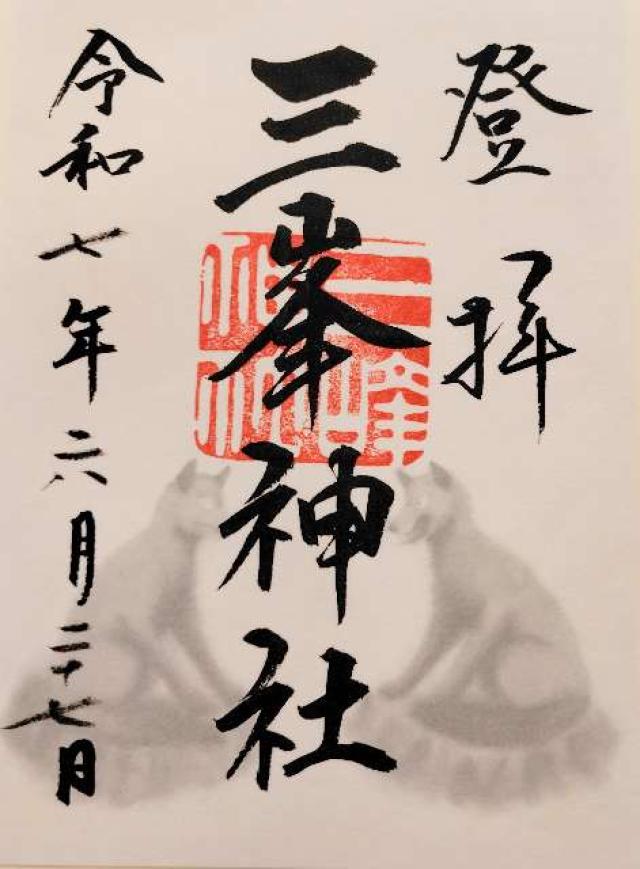 登拝
三峯神社
三峰神社
令和七年六月二十七日